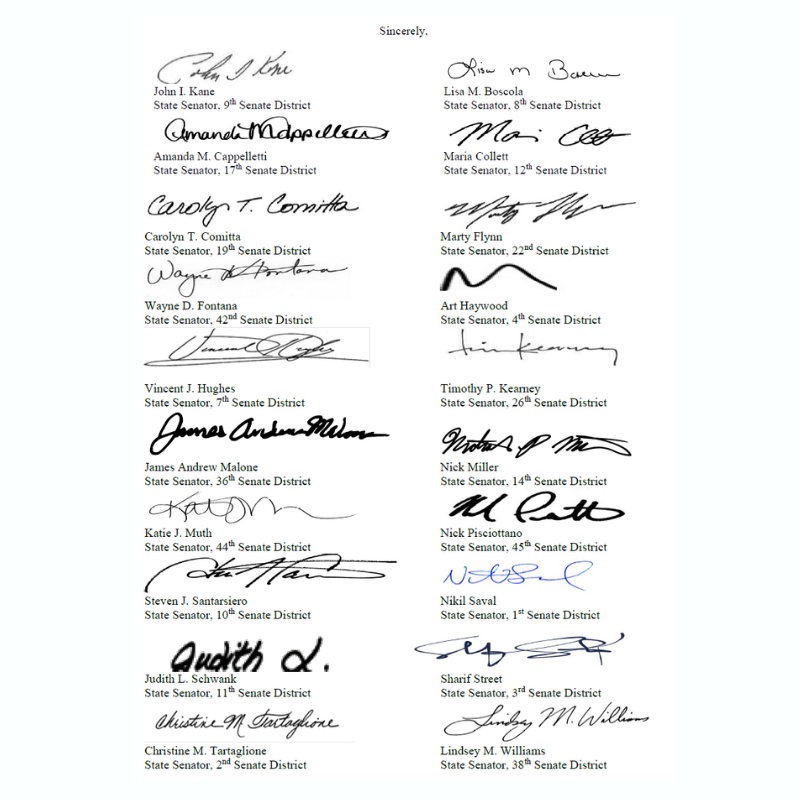 Sincerely,
John I Kane
John I. Kane
State Senator, 9th Senate District
Lisa M
Lisa M. Boscola
State Senator, 8th Senate District
Amanda M Cappelletti
Amanda M. Cappelletti
State Senator, 17th Senate District
Maria Collett
State Senator, 12th Senate District
Carolyn T. Comitta
Carolyn T. Comitta
State Senator, 19th Senate District
Marty Flynn
Marty Flynn
State Senator, 22nd Senate District
Wayne D. Fontana
Wayne D. Fontana
State Senator, 42nd Senate District
Art Haywood
State Senator, 4th Senate District
Vincent J Hughes
Vincent J. Hughes
State Senator, 7th Senate District
Tim Kearney
Timothy P. Kearney
State Senator, 26th Senate District
James Andrew Malone
James Andrew Malone
State Senator, 36th Senate District
Nick Miller
State Senator, 14th Senate District
Katie J. Muth
State Senator, 44th Senate District
Nick Pisciottano
State Senator, 45th Senate District
Steven J. Santarsiero
State Senator, 10th Senate District
Nikil Saval
State Senator, 1st Senate District
Judith L.
Judith L. Schwank
State Senator, 11th Senate District
Sharif Street
State Senator, 3rd Senate District
Christine M Tartaglione
Christine M. Tartaglione
State Senator, 2nd Senate District
Lindsey M. Williams
Lindsey M. Williams
State Senator, 38th Senate District